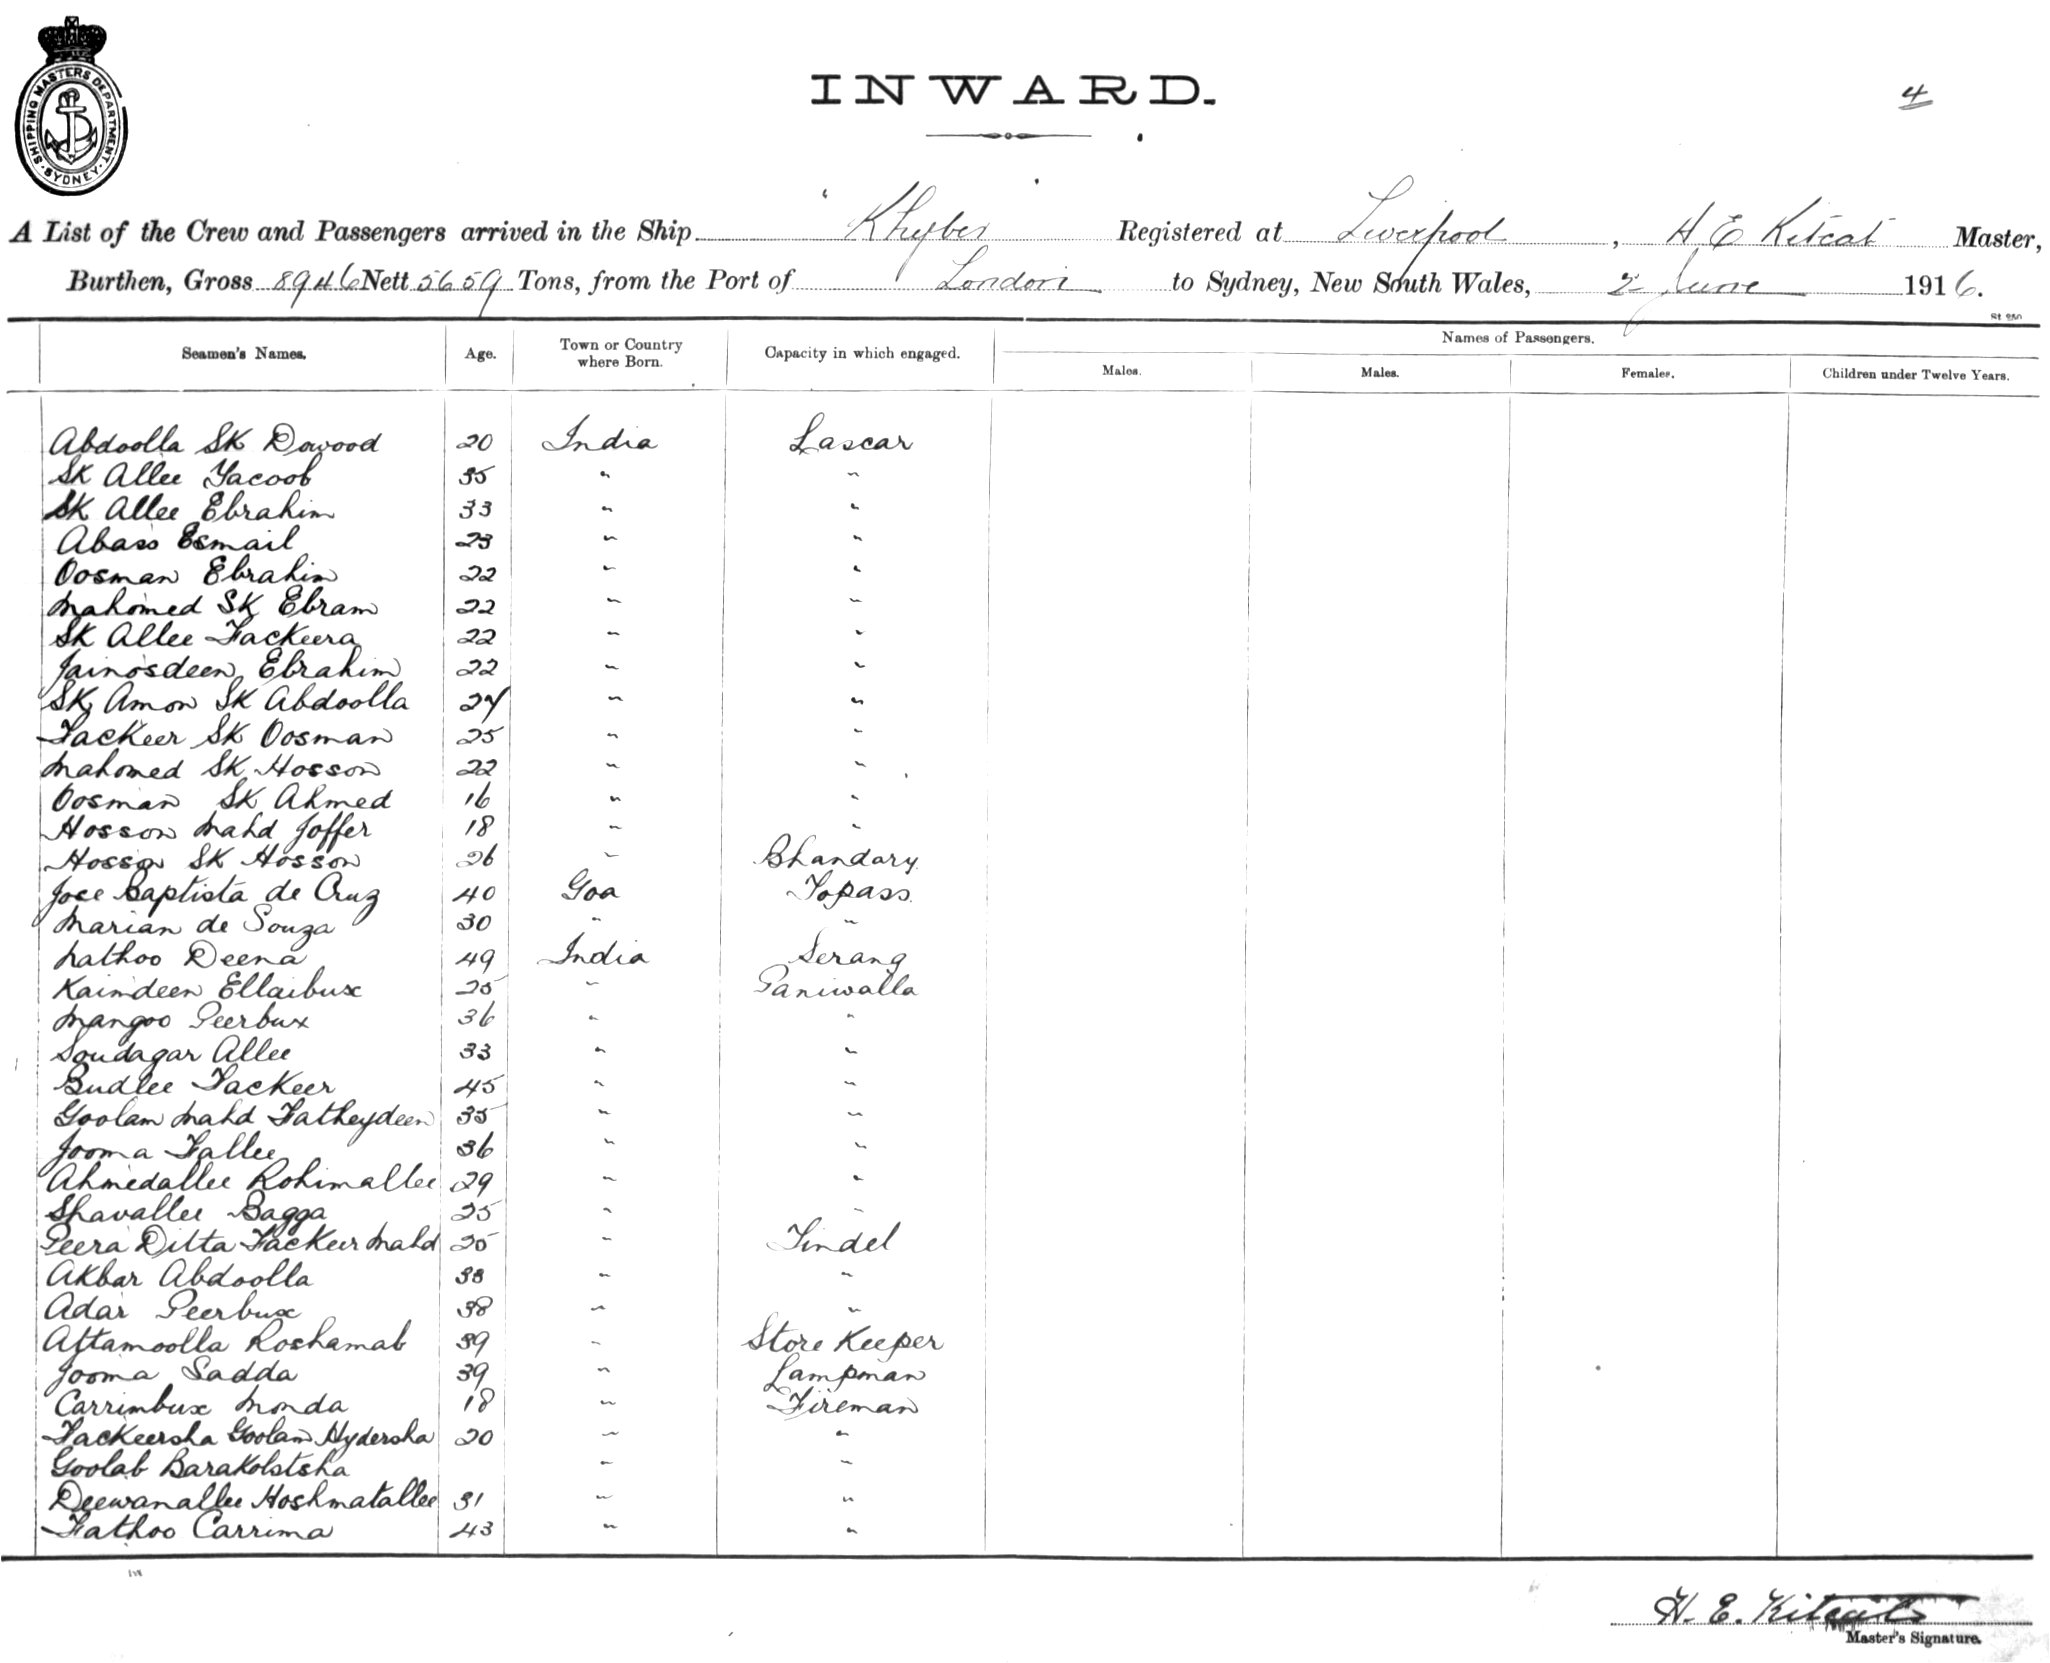 SHIPPING MASTERS DEPARTMENT · SYDNEY ·
INWARD.
4
A List of the Crew and Passengers arrived in the Ship "Khyber" Registered at Liverpool, H E Kitcat Master,
Burthen, Gross 8946 Nett 5659 Tons, from the Port of London to Sydney, New South Wales, 2 June 1916.
Seamen's Names. Age. Town or Country where Born. Capacity in which engaged. Names of Passengers.
Males. Males. Females. Children under Twelve Years.
Abdoolla SK Dowood 20 India Lascar
SK Allee Yacoob 35 " "
SK Allee Ebrahim 33 " "
Abass Esmail 23 " "
Oosman Ebrahim 22 " "
Mahomed SK Ebram 22 " "
SK Allee Fackeera 22 " "
Jainosdeen Ebrahim 22 " "
SK Amon SK Abdoolla 24 " "
Fackeer SK Oosman 25 " "
Mahomed SK Hosson 22 " "
Oosman SK Ahmed 16 " "
Hosson Mahd Joffer 18 " "
Hosson SK Hosson 26 " Bhandary
Jose Baptista de Cruz 40 Goa Topass
Marian de Souza 30 " "
Nathoo Deena 49 India Serang
Kaimdeen Ellaibux 25 " Paniwalla
Mangoo Peerbux 36 " "
Soudagar Allee 33 " "
Budlee Fackeer 45 " "
Goolam Mahd Fatheydeen 35 " "
Jooma Fallee 36 " "
Ahmedallee Rohimallee 29 " "
Shavallee Bagga 25 " "
Peera Ditta Fackeer Mahd 25 " Tindel
Akbar Abdoolla 38 " "
Adar Peerbux 38 " "
Aftamoolla Roshamab 39 " Store Keeper
Jooma Sadda 39 " Lampman
Carrimbux Monda 18 " Fireman
Fackeersha Goolam Hydersha 20 " "
Goolab Barakolstsha " "
Deewanallee Hoshmatallee 31 " "
Fathoo Carrima 43 " "
H. E. Kitcat
Master's Signature.